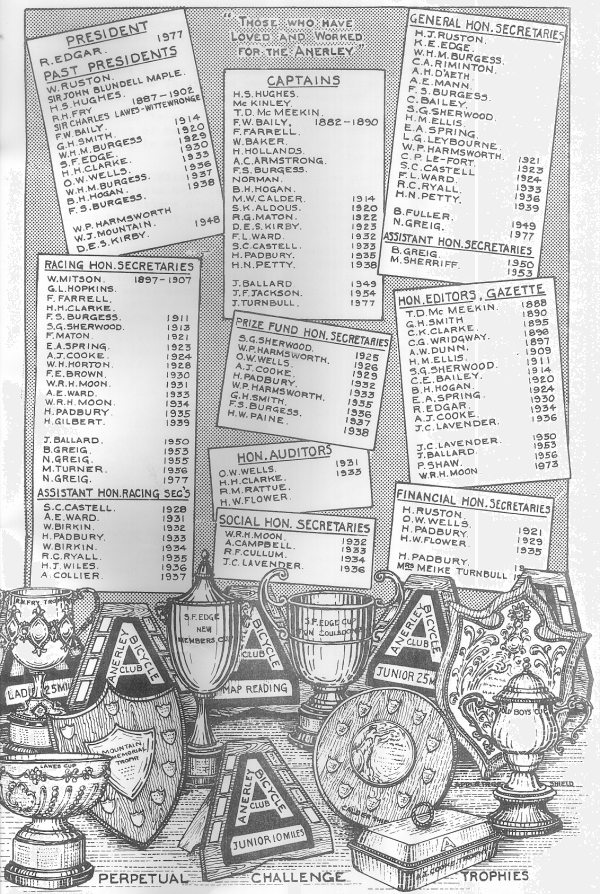 "THOSE WHO HAVE
LOVED AND WORKED
FOR THE ANERLEY"
PRESIDENT
R. EDGAR. 1977
PAST PRESIDENTS
W. RUSTON.
SIR JOHN BLUNDELL MAPLE.
H.S. HUGHES.
R.H. FRY 1887-1902
SIR CHARLES LAWES-WITTEWRONGE
F.W. BAILY. 1914
G.H. SMITH. 1920
W.H.M. BURGESS 1929
S.F. EDGE. 1930
H.H. CLARKE. 1933
O.W. WELLS. 1936
W.H.M. BURGESS. 1937
B.H. HOGAN. 1938
F.S. BURGESS.
W.P. HARMSWORTH
W.J. MOUNTAIN. 1948
D.E.S. KIRBY.
CAPTAINS
H.S. HUGHES.
Mc KINLEY.
T.D. Mc MEEKIN.
F.W. BAILY, 1882-1890
F. FARRELL.
W. BAKER.
H. HOLLANDS.
A.C. ARMSTRONG.
F.S. BURGESS.
NORMAN.
B.H. HOGAN.
M.W. CALDER. 1914
S.K. ALDOUS. 1920
R.G. MATON. 1922
D.E.S. KIRBY. 1923
F.L. WARD. 1932
S.C. CASTELL. 1933
H. PADBURY. 1935
H.N. PETTY. 1938
J. BALLARD 1949
J.F. JACKSON. 1954
J. TURNBULL. 1977
GENERAL HON. SECRETARIES
H.J. RUSTON.
K.E. EDGE.
W.H.M. BURGESS.
C.A. RIMINTON.
A.H. D'AETH.
A.E. MANN.
F.S. BURGESS.
C. BAILEY.
S.G. SHERWOOD.
H.M. ELLIS.
E.A. SPRING.
L.G. LEYBOURNE.
W.P. HARMSWORTH. 1921
C.P. LE-FORT. 1923
S.C. CASTELL 1924
F.L. WARD 1933
R.C. RYALL. 1936
H.N. PETTY. 1939
B. FULLER. 1949
N. GREIG. 1977
ASSISTANT HON. SECRETARIES
B. GREIG. 1950
M. SHERRIFF. 1953
RACING HON. SECRETARIES
W. MITSON. 1897-1907
G.L. HOPKINS.
F. FARRELL.
H.H. CLARKE.
F.S. BURGESS 1911
S.G. SHERWOOD. 1913
F. MATON. 1921
E.A. SPRING. 1923
A.J. COOKE. 1924
W.H. HORTON 1928
F.E. BROWN. 1930
W.R.H. MOON. 1931
A.E. WARD. 1933
W.R.H. MOON. 1934
H. PADBURY. 1935
H. GILBERT. 1939
J. BALLARD. 1950
B. GREIG. 1953
N. GREIG. 1955
M. TURNER. 1956
N. GREIG. 1977
ASSISTANT HON. RACING SEC'S
S.C. CASTELL. 1928
A.E. WARD. 1931
W. BIRKIN. 1932
H. PADBURY. 1933
W. BIRKIN. 1934
R.C. RYALL. 1935
H.J. WILES. 1936
A. COLLIER. 1937
PRIZE FUND HON. SECRETARIES
S.G. SHERWOOD. 1925
W.P. HARMSWORTH. 1926
O.W. WELLS. 1929
A.J. COOKE. 1932
H. PADBURY. 1933
W.P. HARMSWORTH. 1935
G.H. SMITH. 1936
F.S. BURGESS. 1937
H.W. PAINE. 1938
HON. AUDITORS
O.W. WELLS. 1931
H.H. CLARKE. 1933
R.M. RATTUE.
H.W. FLOWER.
SOCIAL HON. SECRETARIES
W.R.H. MOON. 1932
A. CAMPBELL. 1933
R.F. CULLUM. 1934
J.C. LAVENDER. 1936
HON. EDITORS, GAZETTE
T.D. Mc MEEKIN. 1888
G.H. SMITH 1890
C.K. CLARKE. 1895
C.G. WRIDGWAY. 1898
A.W. DUNN. 1897
H.M. ELLIS. 1909
S.G. SHERWOOD. 1911
C.E. BAILEY. 1914
B.H. HOGAN. 1920
E.A. SPRING. 1924
R. EDGAR. 1930
A.J. COOKE. 1934
J.C. LAVENDER. 1936
J.C. LAVENDER. 1950
J. BALLARD. 1953
P. SHAW. 1956
W.R.H. MOON 1973
FINANCIAL HON. SECRETARIES
H. RUSTON.
O.W. WELLS.
H. PADBURY. 1921
H.W. FLOWER. 1929
1935
H. PADBURY.
MRS MEIKE TURNBULL
R.H. FRY TROPHY
ANERLEY BICYCLE CLUB
S.F. EDGE
NEW
MEMBERS CUP
BICYCLE CLUB
MAP READING
S.F. EDGE CUP
ANERLEY BICYCLE CLUB
JUNIOR 25M
MOUNTAIN
MEMORIAL
TROPHY
LAWES CUP
ANERLEY BICYCLE CLUB
JUNIOR 10 MILES
OLD BOYS CUP
SHIELD
PERPETUAL CHALLENGE TROPHIES